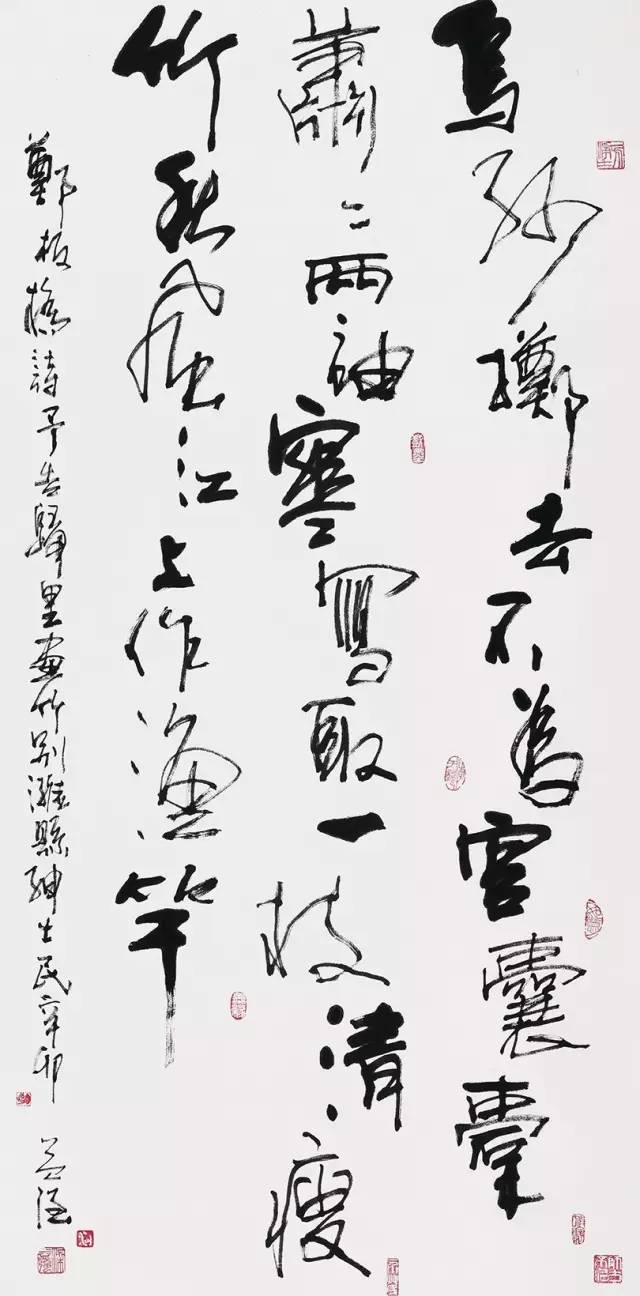 烏紗擲去不為官囊橐
蕭〻兩袖寒寫取一枝清瘦
竹秋風江上作漁竿
鄭板橋詩予告歸里畫竹別濰縣紳士民辛卯